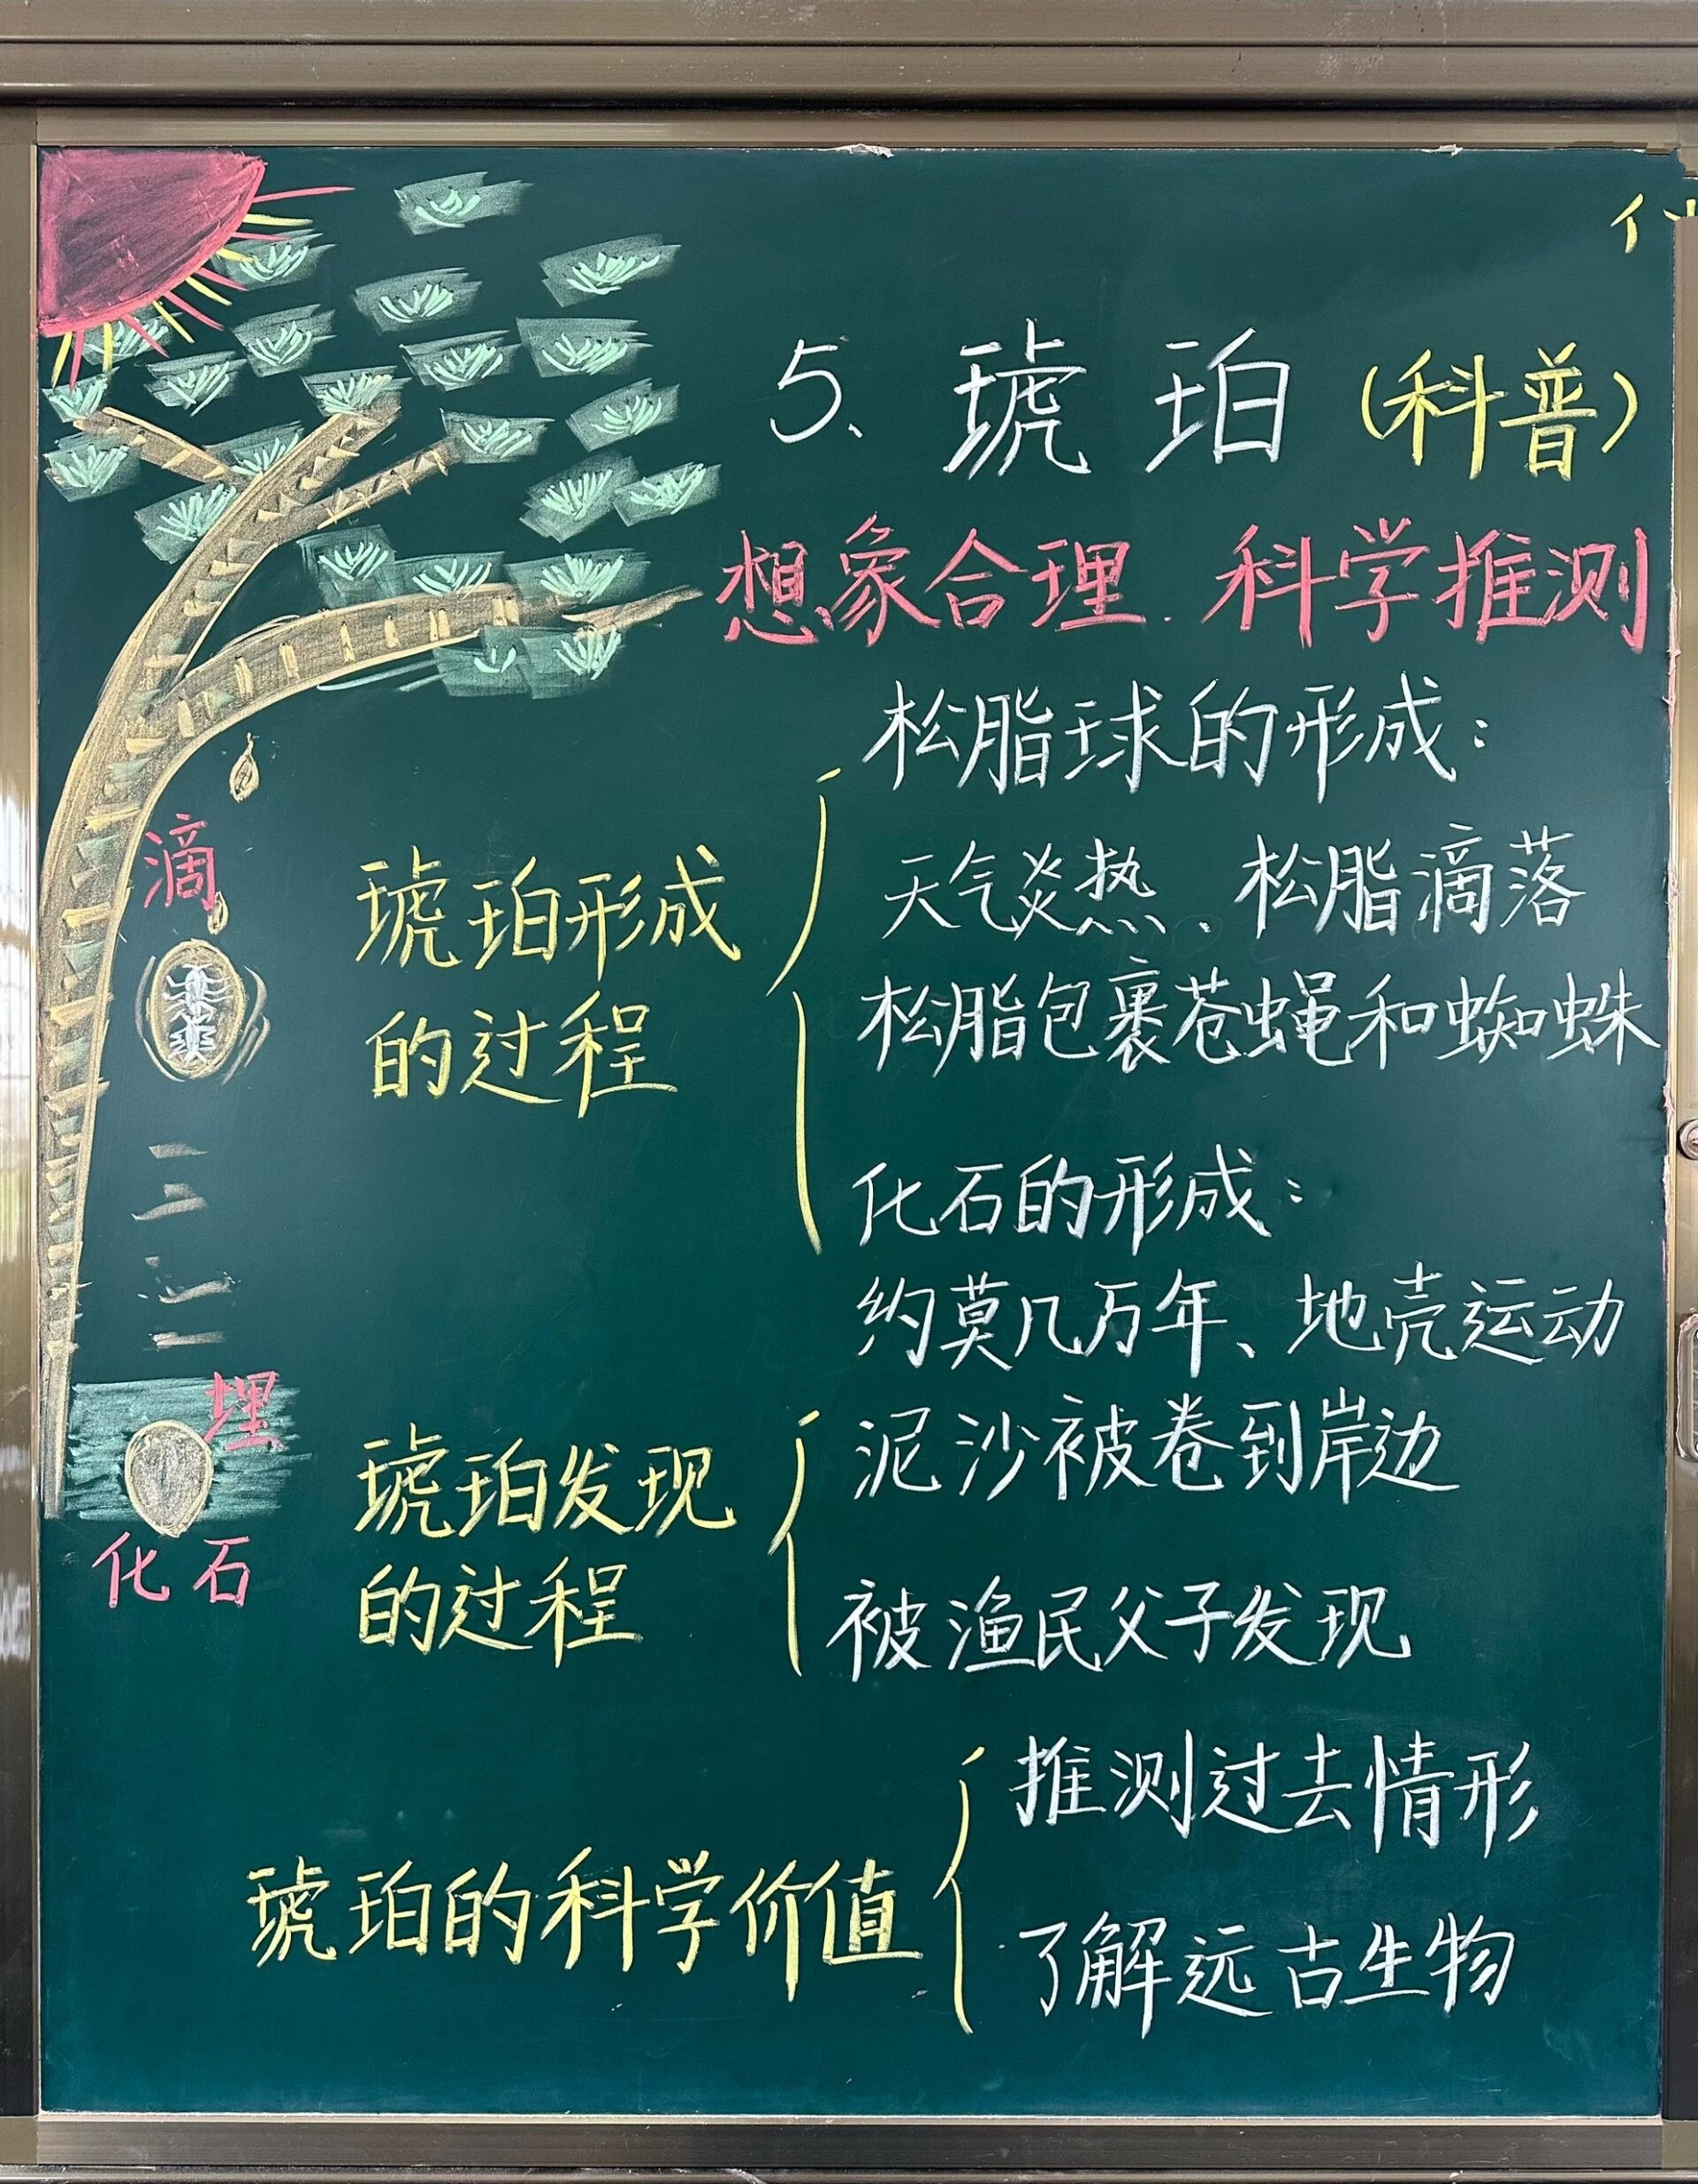 5、琥珀(科普)
想象合理.科学推测
松脂球的形成:
天气炎热、松脂滴落
松脂包裹苍蝇和蜘蛛
琥珀形成
的过程
化石的形成:
约莫几万年、地壳运动
泥沙被卷到岸边
被渔民父子发现
琥珀发现
的过程
推测过去情形
了解远古生物
琥珀的科学价值
滴
埋
化石